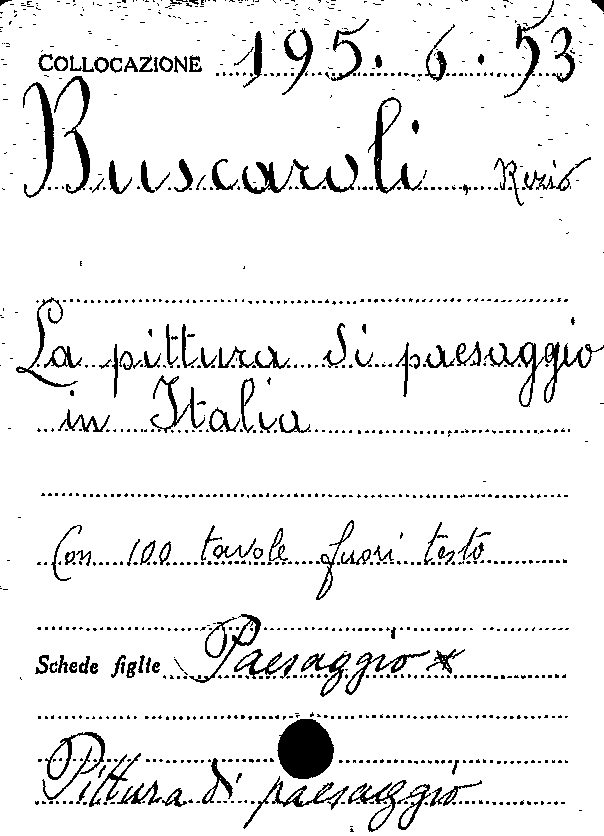 COLLOCAZIONE 195. 6. 53
Buscaroli, Rezio
La pittura di paesaggio
in Italia
Con 100 tavole fuori testo
Schede figlie Paesaggio *
Pittura di paesaggio